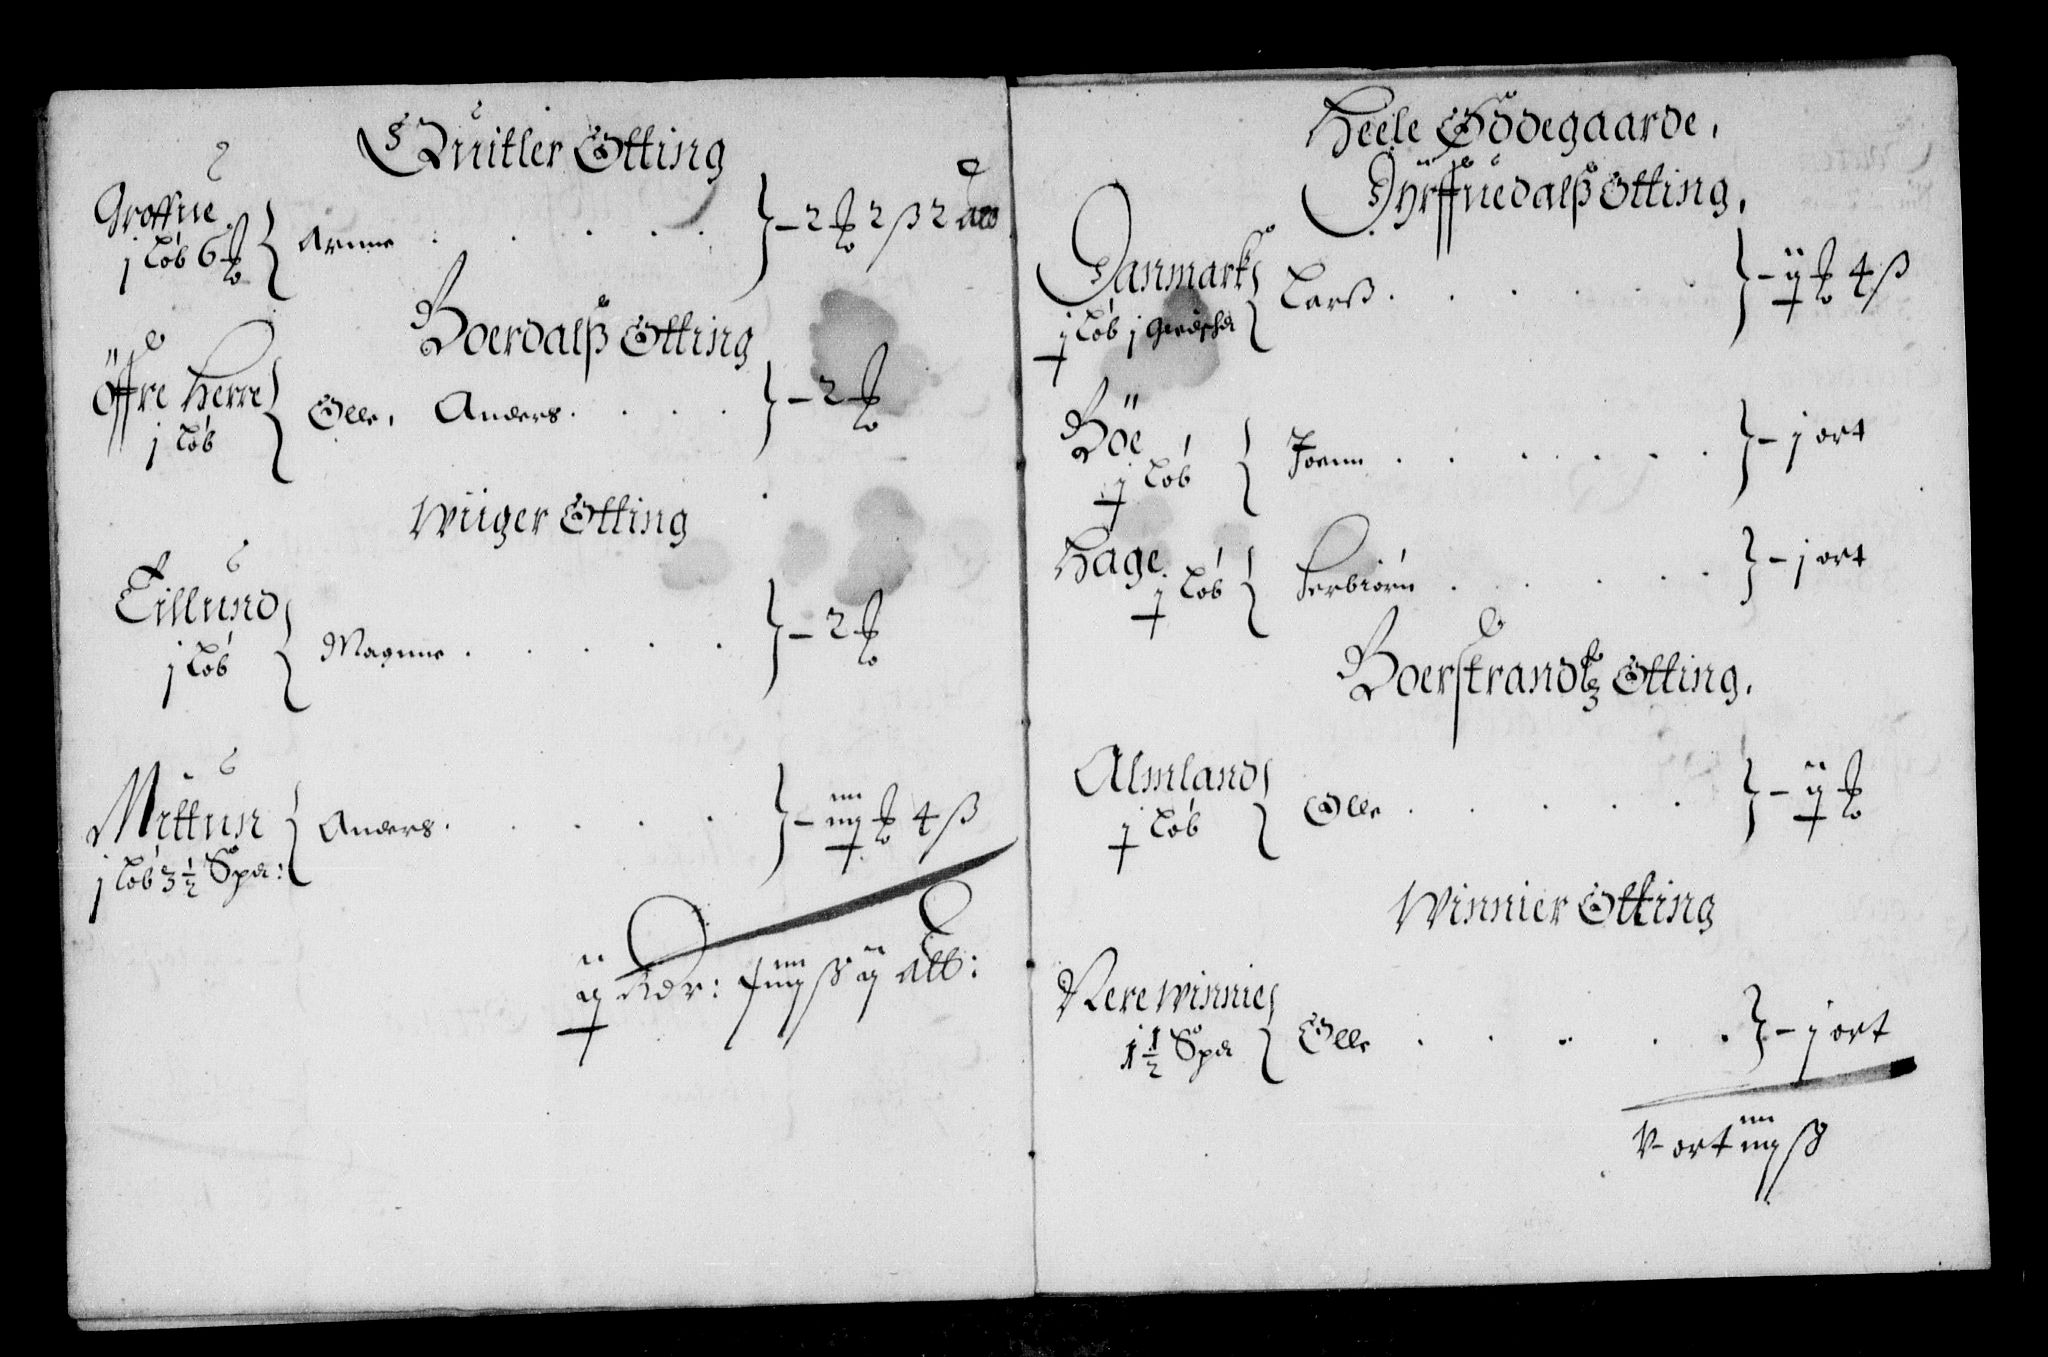 Quitler Otting
Groffue
j løb 6 ₻ } Arnne . . . . . } – 2 ₻ 2 ß 2 alb
Boerdalß Otting
Öffre herre
j løb } Olle, Anders . . . } – 2 ₻
Wiiger Otting
Eillund
j løb } Magnne . . . . . } – 2 ₻
Mittun
j løb 3 ½ Spd: } Anders . . . . . } – iiij ₻ 4 ß
ij Rdr: iiij ß ij alb:
Heele Ödegaarde.
Dyrffuedalß Otting.
Danmark
½ løb j } Larß . . . . . } – ij ₻ 4 ß
Böe
½ løb } Joenn . . . . . . } – j ort
Hage
½ løb } Torbiørn . . . . . } – j ort
Boerstrandtz Otting.
Almland
½ løb } Olle . . . . . } – ij ₻
Winnier Otting
Nere winnie
1 ½ Spd } Olle . . . . . } – j ort
V ort iiij ß